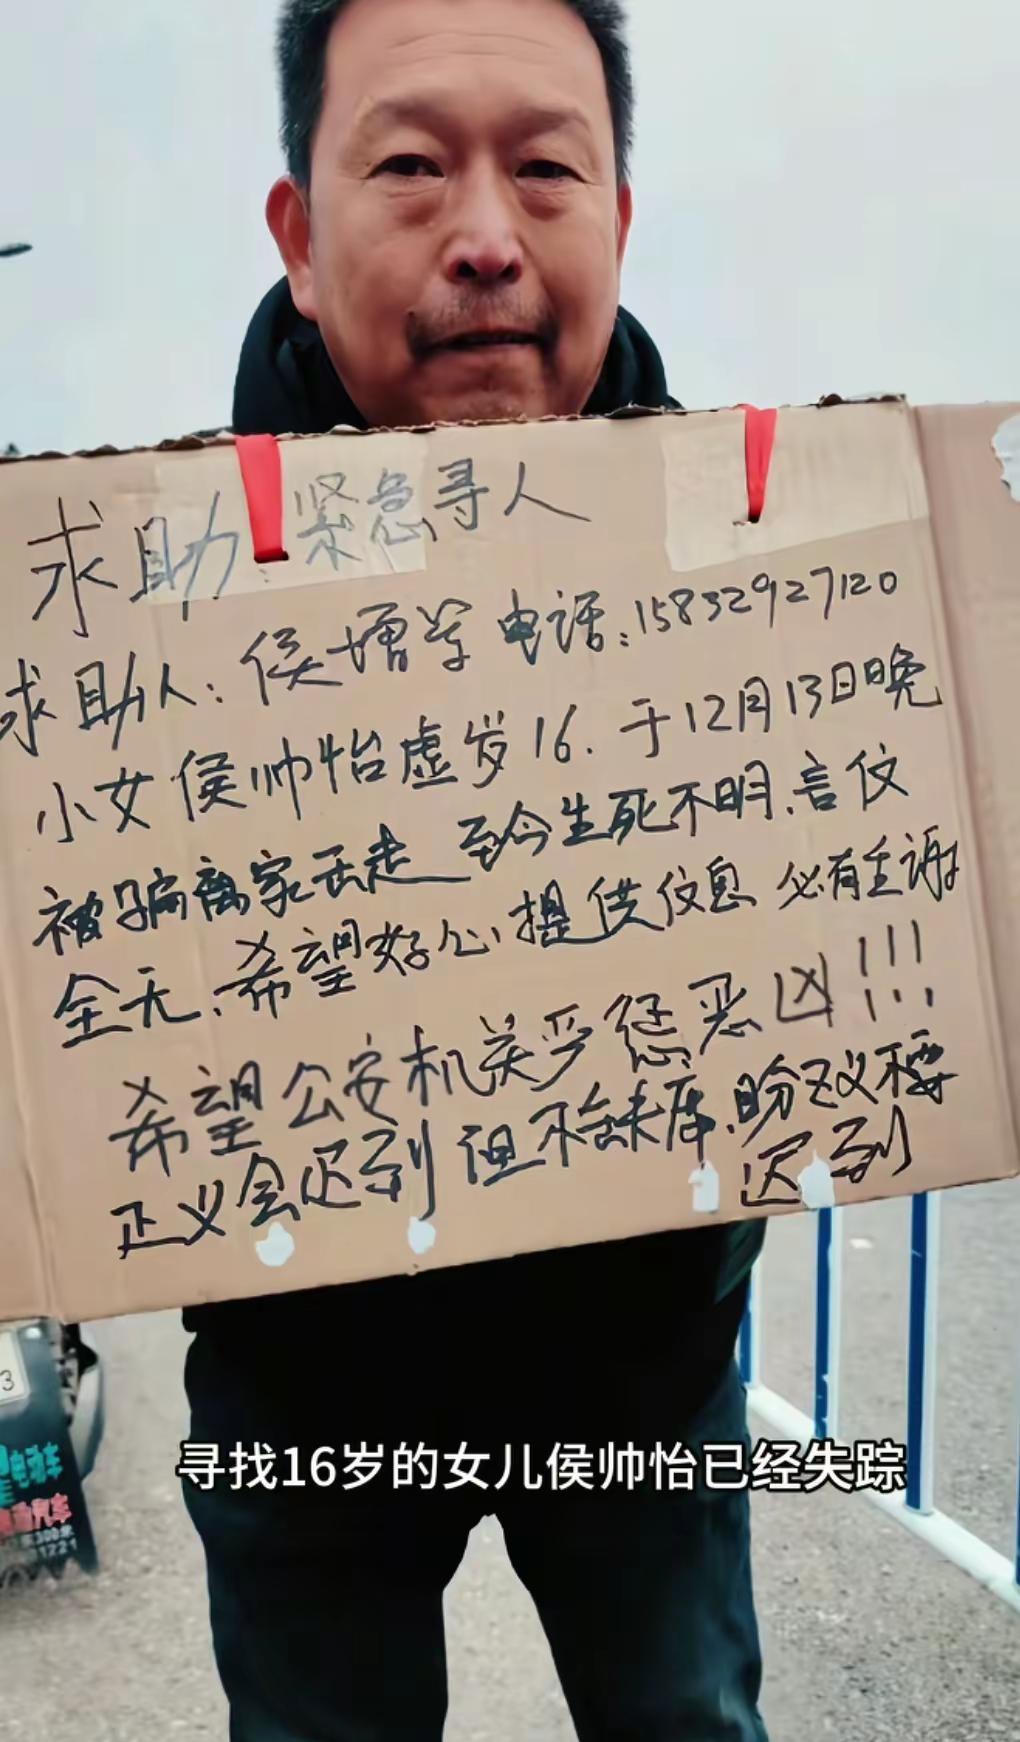 求助:紧急寻人
求助人:侯增学 电话:15832927120
小女侯帅怡虚岁16.于12月13日晚
被骗离家丢走至今生死不明、言仪
全无、希望好心提供仪息 必有重谢
希望公安机关严惩恶凶!!!
正义会迟到但不会缺席、盼正义不要
迟到
3
电动车
汽车
1221
寻找16岁的女儿侯帅怡已经失踪